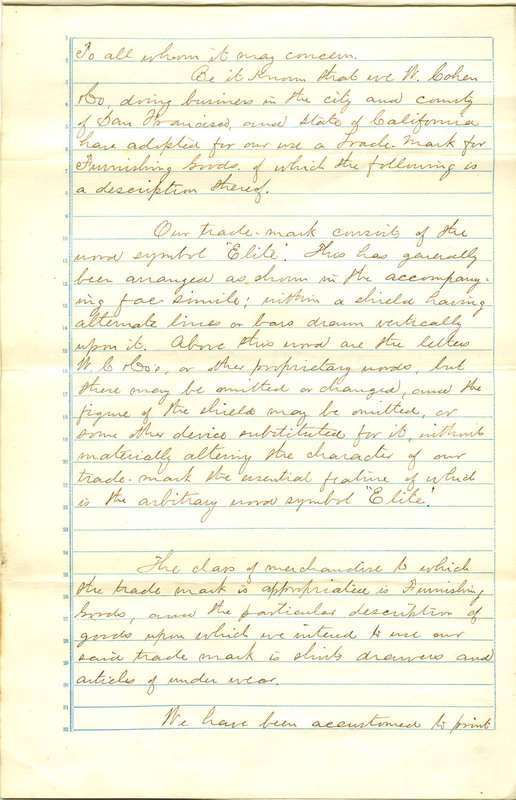 To all whom it may concern.
Be it Known that we W. Cohen
& Co, doing business in the city and county
of San Francisco, and state of California
have adopted for our use a Trade-Mark for
Furnishing Goods, of which the following is
a description thereof.
Our trade-mark consists of the
word symbol "Elite". This has generally
been arranged as shown in the accompany-
ing fac simile; within a shield having
alternate lines or bars drawn vertically
upon it. Above this word are the letters
W. C & Co's, or other proprietary words, but
these may be omitted or changed, and the
figure of the shield may be omitted, or
some other device substituted for it, without
materially altering the character of our
trade-mark the essential feature of which
is the arbitrary word symbol "Elite".
The class of merchandise to which
the trade mark is appropriated is Furnishing
Goods, and the particular description of
goods upon which we intend to use our
said trade mark is shirts drawers and
articles of under wear.
We have been accustomed to print